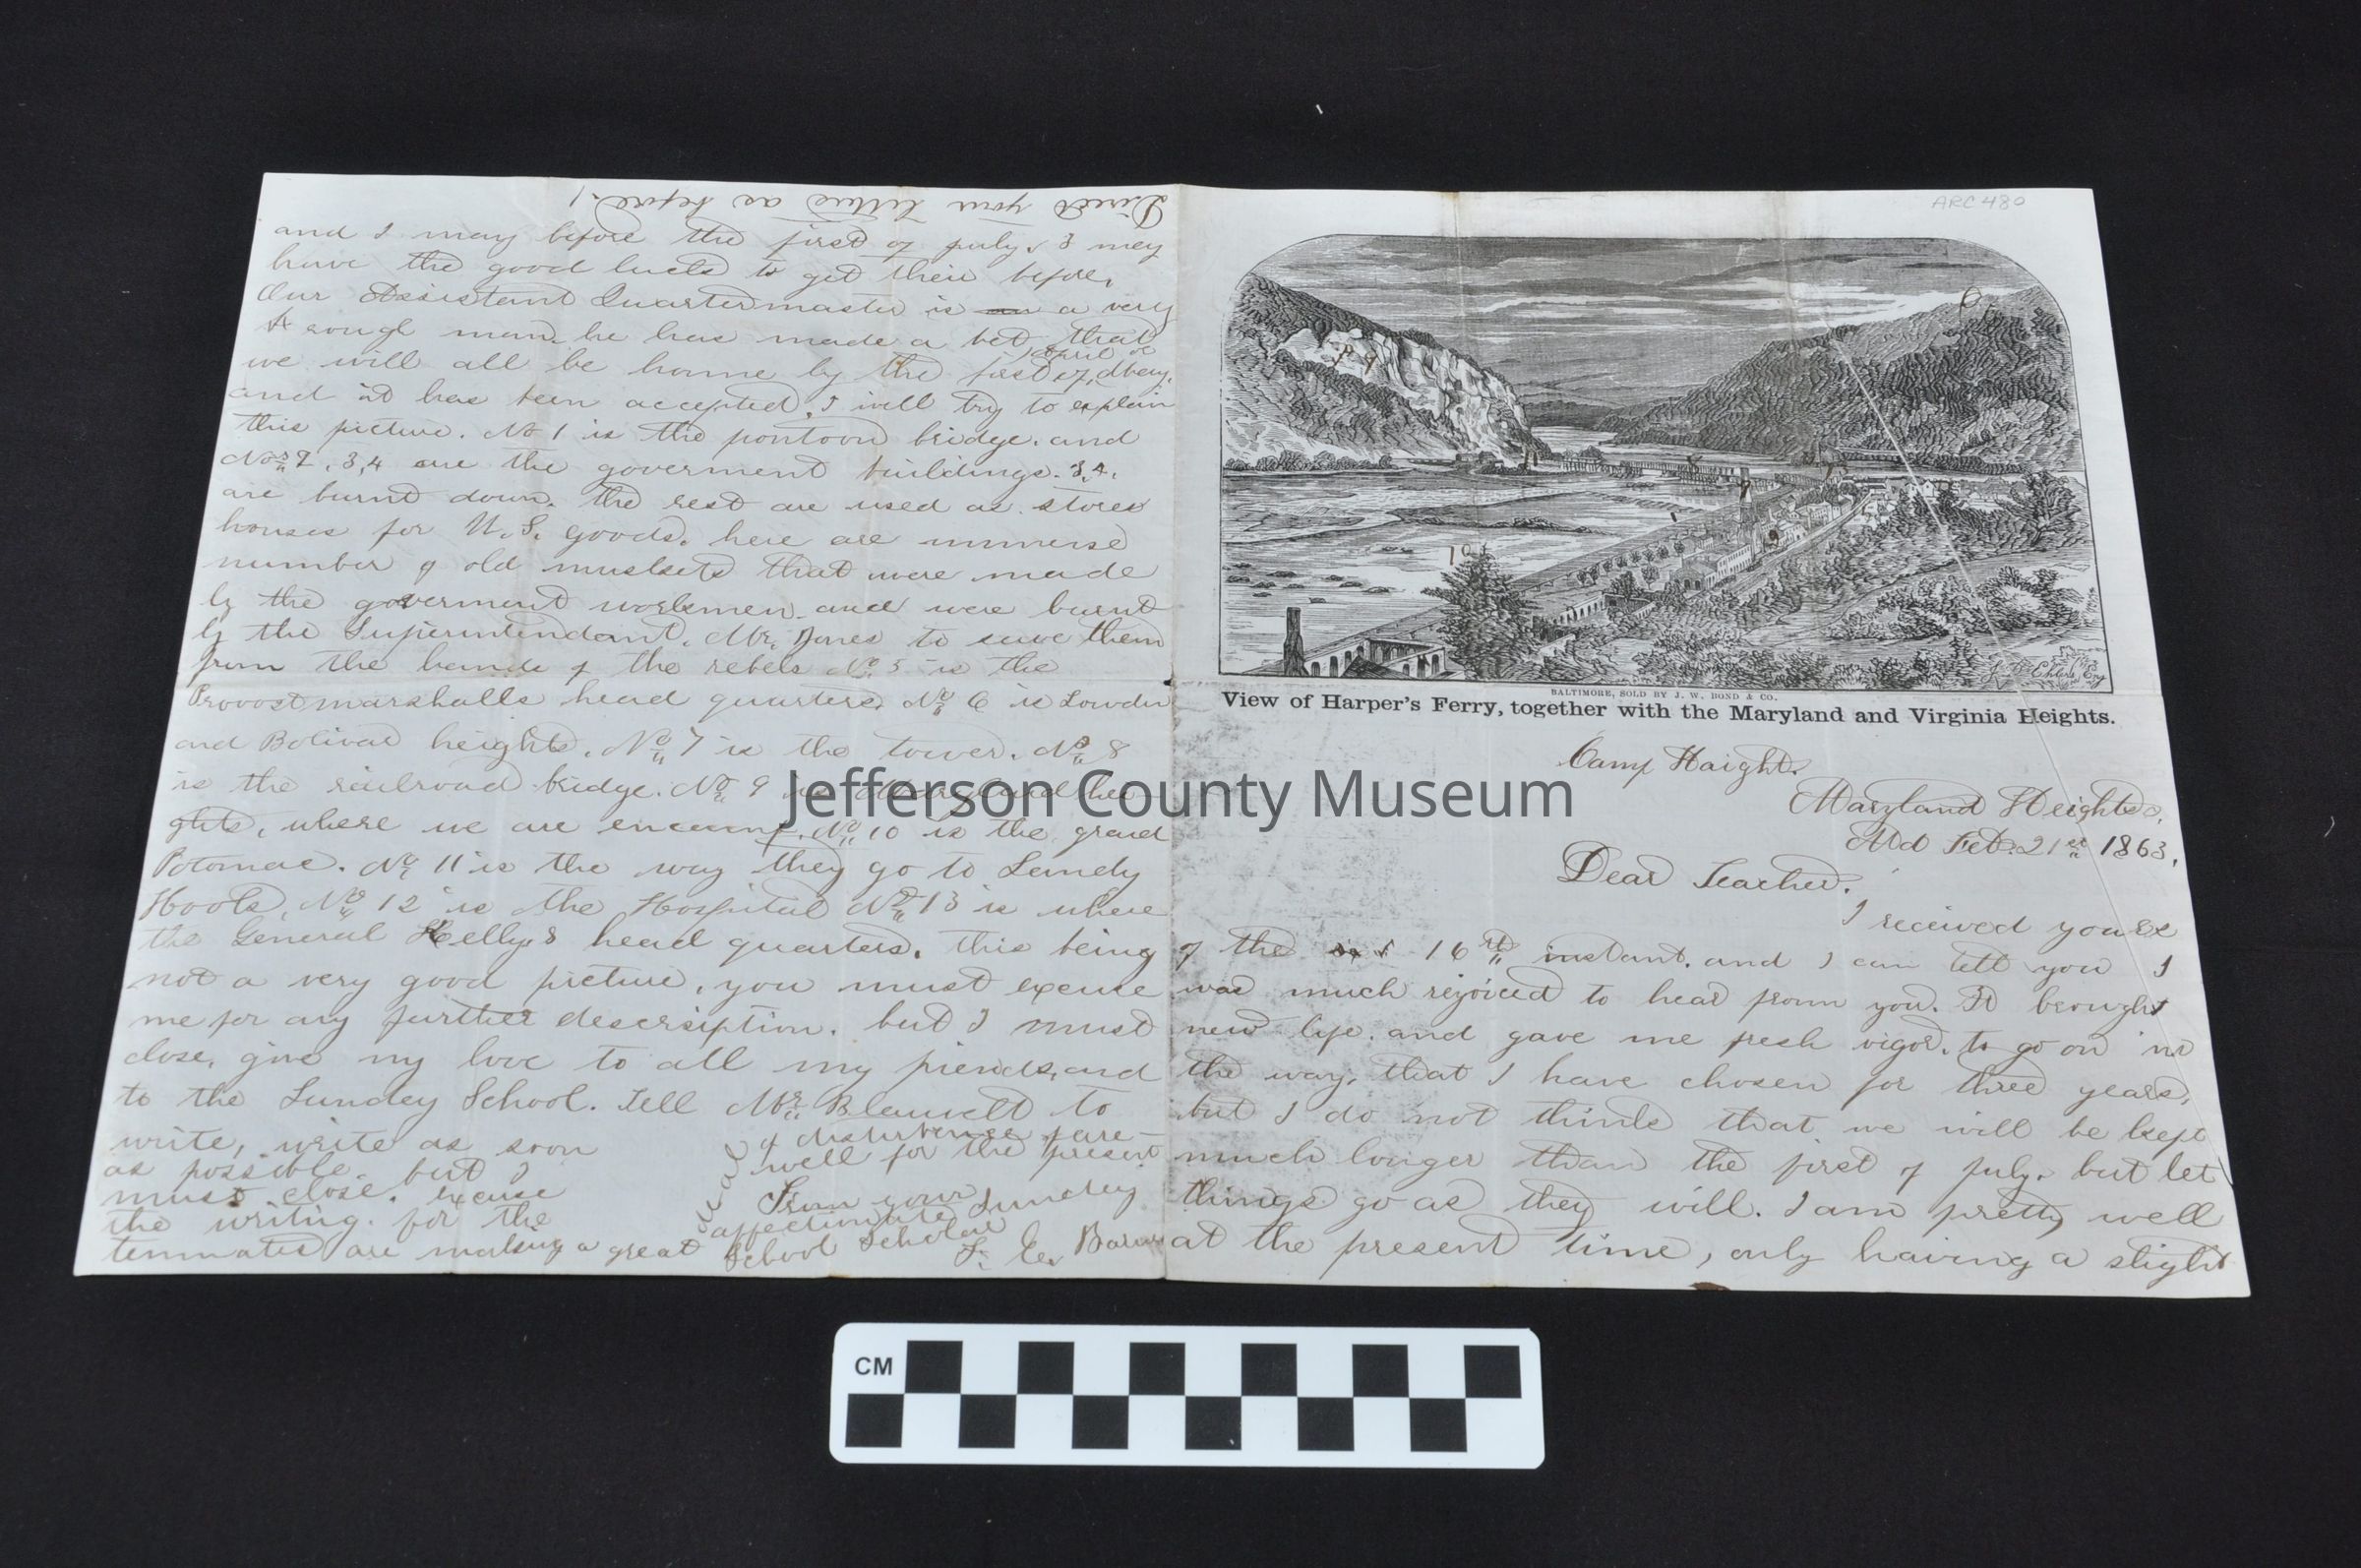 ARC 480
BALTIMORE, SOLD BY J. W. BOND & CO.
View of Harper's Ferry, together with the Maryland and Virginia Heights.
Camp Haight.
Maryland Heights.
Md Feb. 21st 1863.
Dear Teacher.
I received your
of the 16th instant. and I can tell you I
was much rejoiced to hear from you. It brought
new life. and gave me fresh vigor. to go on in
the way, that I have chosen for three years,
but I do not think that we will be kept
much longer than the first of July. but let
things go as they will. I am pretty well
at the present time, only having a slight
Direct your letters as before!
and I may before the first of july. I may
have the good luck to get their before,
Our Assistant Quartermaster is a very
rough man. he has made a bet that
we will all be home by the first of april or
and it has been accepted. I will try to explain
this picture. No 1 is the pontoon bridge. and
Nos 2, 3, 4 are the goverment buildings. 3, 4.
are burnt down. the rest are used as store
houses for U. S. goods. here are immense
number of old muskets that were made
by the goverment workmen and were burnt
by the Superintendant. Mr. Jones to save them
from the hands of the rebels No. 5 is the
Provost marshalls head quarters. No 6 is Lowden
and Bolivar heights. No 7 is the tower. No 8
is the railroad bridge. No 9 is Maryland hei-
ghts, where we are encamp. No 10 is the grand
Potomac. No 11 is the way they go to Sandy
Hook. No 12 is the Hospital No 13 is where
the General Kelly,s head quarters. This being
not a very good picture, you must excuse
me for any further descrsiption. but I must
close, give my love to all my friends, and
to the Sunday School. Tell Mr. Blauvelt to
write, write as soon
as possible. but I
must close. excuse
the writing. for the
tenmates are making a great deal
of disturbence fare-
well for the present
From your
affectionate Sunday
School Scholar
Jefferson County Museum
CM